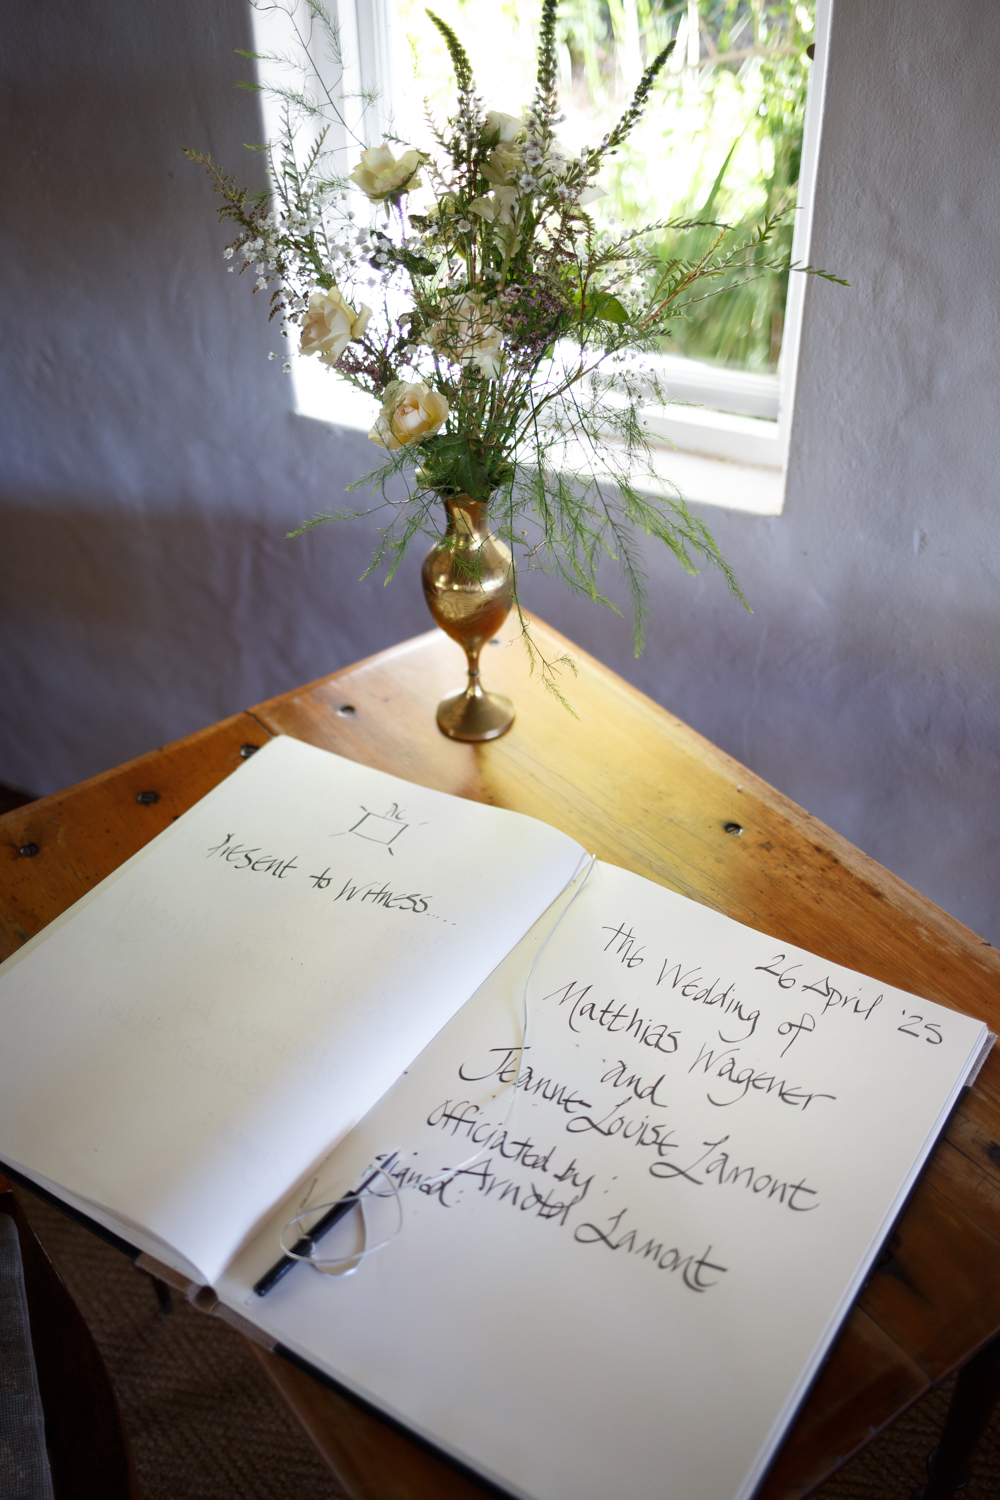 Present to Witness.....
26 April '25
The Wedding of
Matthias Wagener
and
Jeanne-Louise Lamont
Officiated by:
Arnold Lamont
Signed: